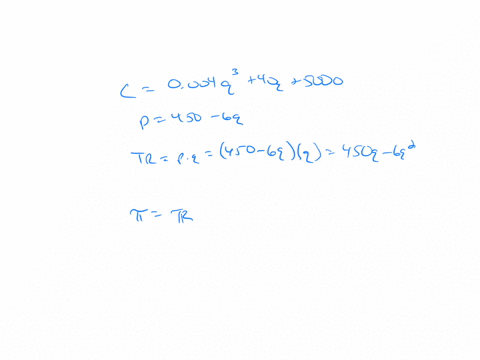 C = 0.004q³ + 4q + 5000
P = 450 - 6q
TR = P·q = (450 - 6q)(q) = 450q - 6q²
π = TR